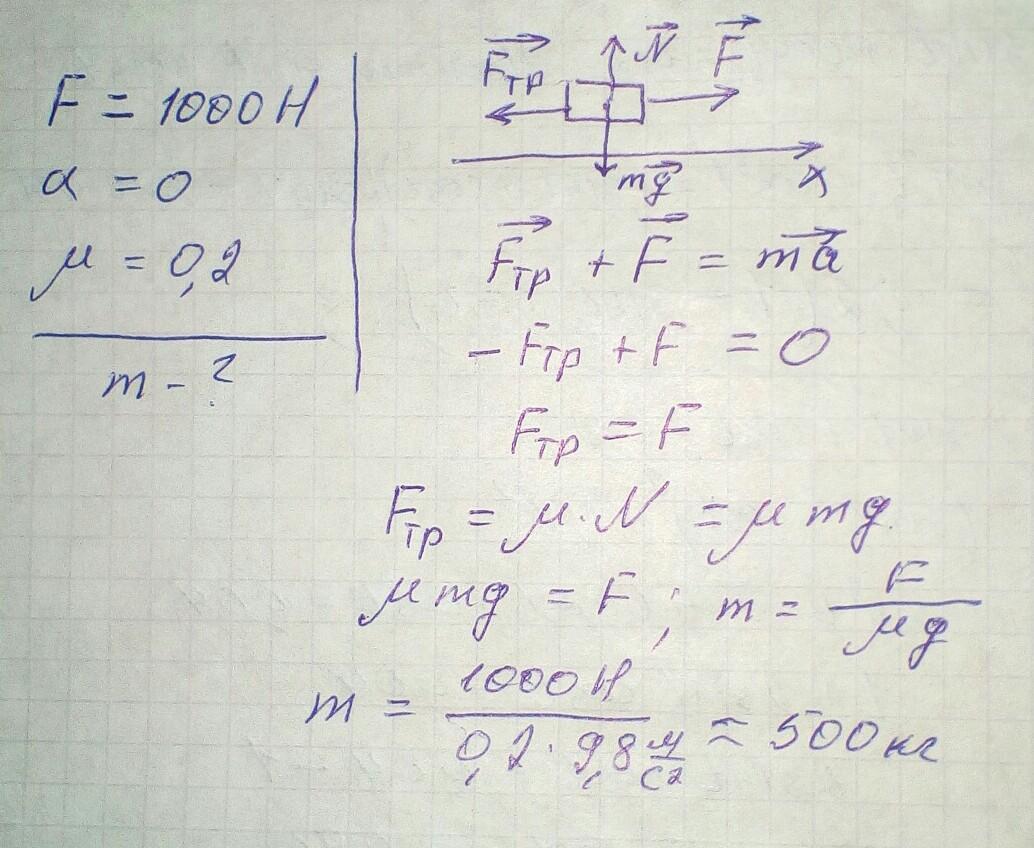 F = 1000 Н
a = 0
μ = 0,2
m - ?
F⃗тр N⃗ F⃗
mg⃗ x
F⃗тр + F⃗ = ma⃗
- Fтр + F = 0
Fтр = F
Fтр = μ·N = μmg
μmg = F ; m = F/μg
m = 1000 Н/0,2·9,8 м/с² ≈ 500 кг